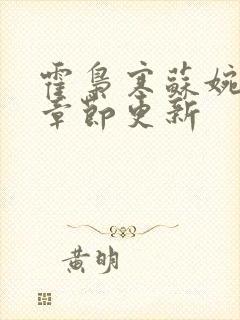 霍梟寒蘇婉
章節更新
黃明